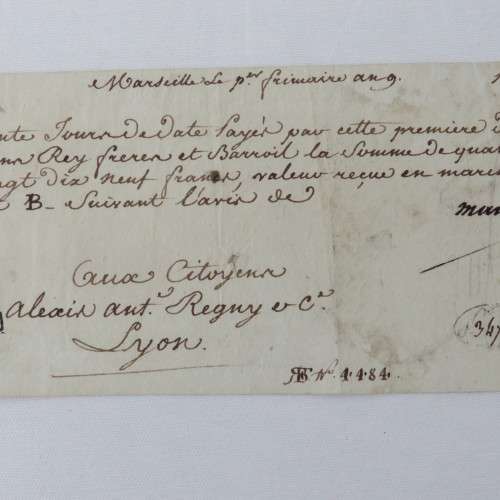 Marseille Le p.er frimaire an 9.
nte Jours de date Payés par cette première
ns Rey freres et Barroil la Somme de quat
ngt dix neuf francs, valeur reçue en marc
B_ Suivant l'avis de
Aux Citoyens
Alexis ant.e Regny & C.e
Lyon.
347
N.o 4484.